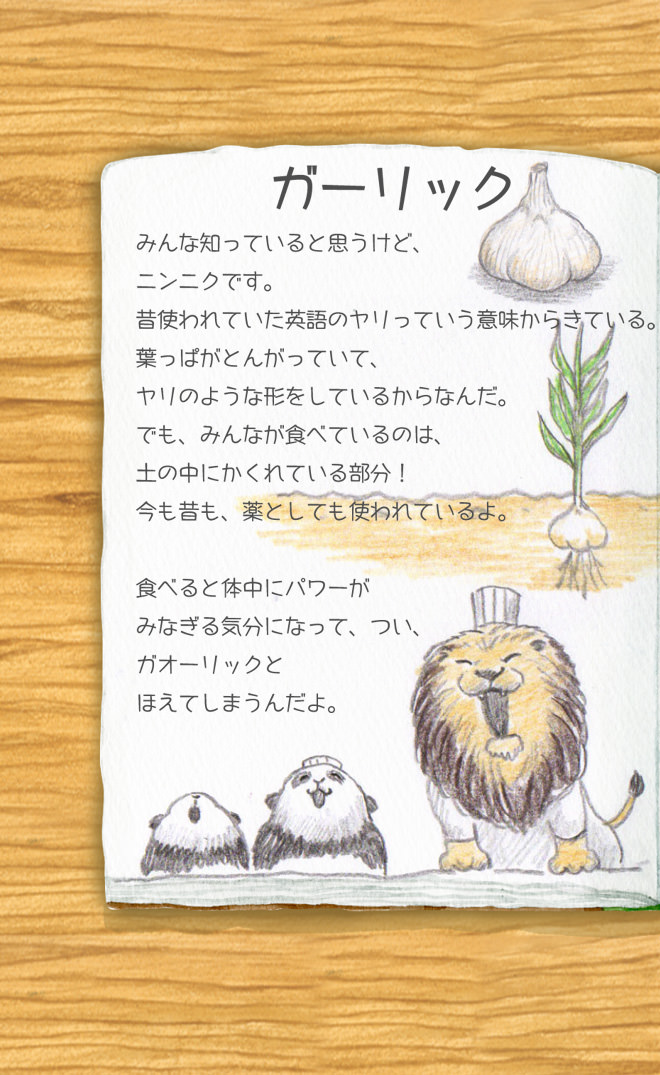 ガーリック
みんな知っていると思うけど、
ニンニクです。
昔使われていた英語のヤリっていう意味からきている。
葉っぱがとんがっていて、
ヤリのような形をしているからなんだ。
でも、みんなが食べているのは、
土の中にかくれている部分！
今も昔も、薬としても使われているよ。
食べると体中にパワーが
みなぎる気分になって、つい、
ガオーリックと
ほえてしまうんだよ。